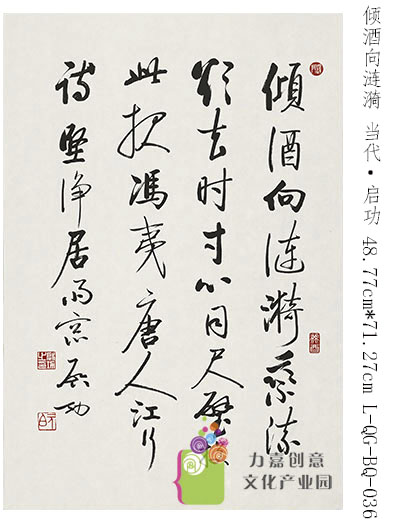 倾酒向涟漪 当代·启功 48.77cm*71.27cm L-QG-BQ-036
傾酒向漣漪乘流
欲去时寸心同尺璧
此报馮夷唐人江行
诗堅净居雨窗启功
力嘉创意
文化产业园